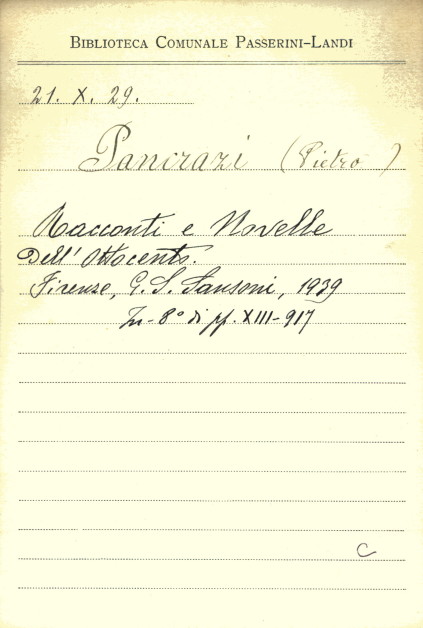 BIBLIOTECA COMUNALE PASSERINI-LANDI
21. X. 29.
Pancrazi (Pietro)
Racconti e Novelle
Dell' Ottocento.
Firenze, G. S. Sansoni, 1939
In-8° di pp. XIII-917
C